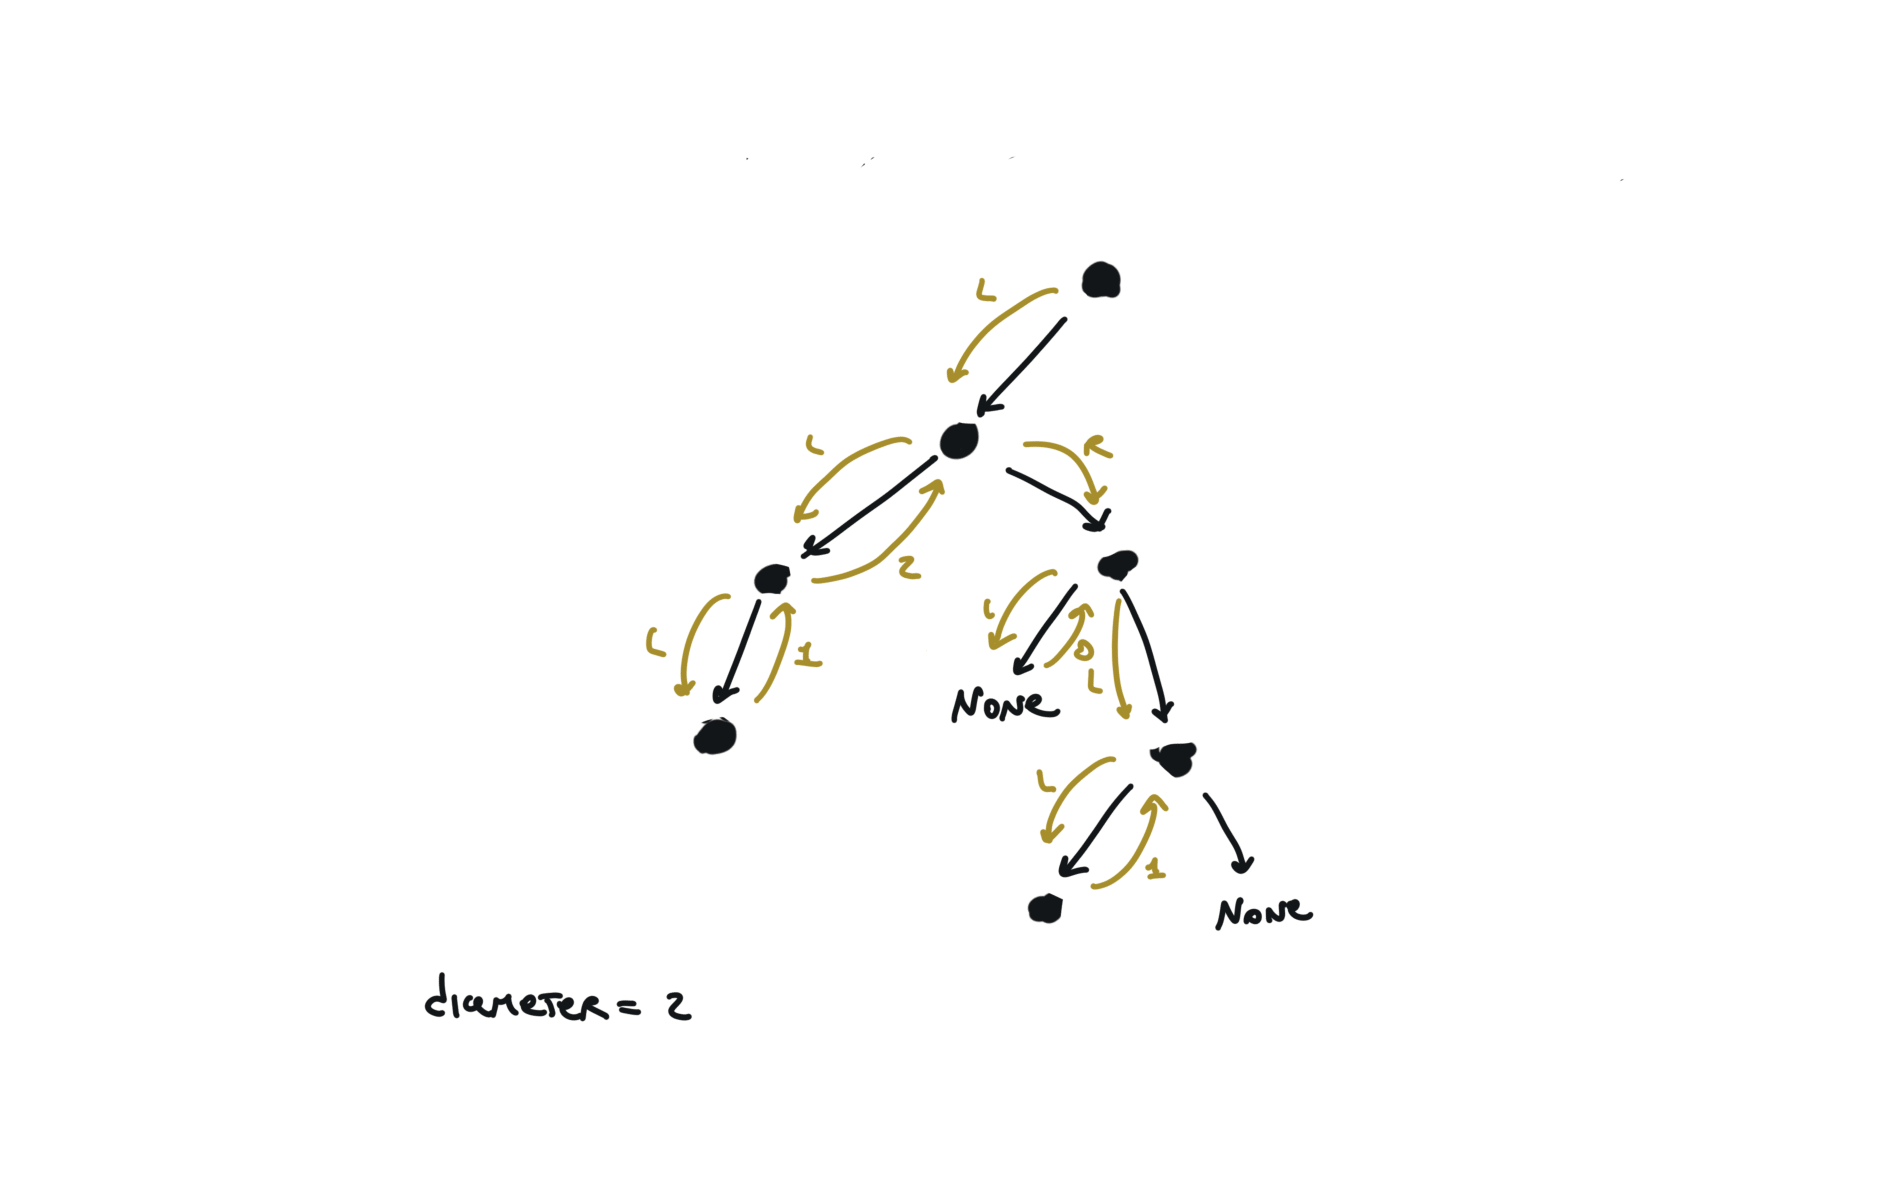 L
L
R
2
L
1
L
0
L
None
L
1
None
diameter = 2